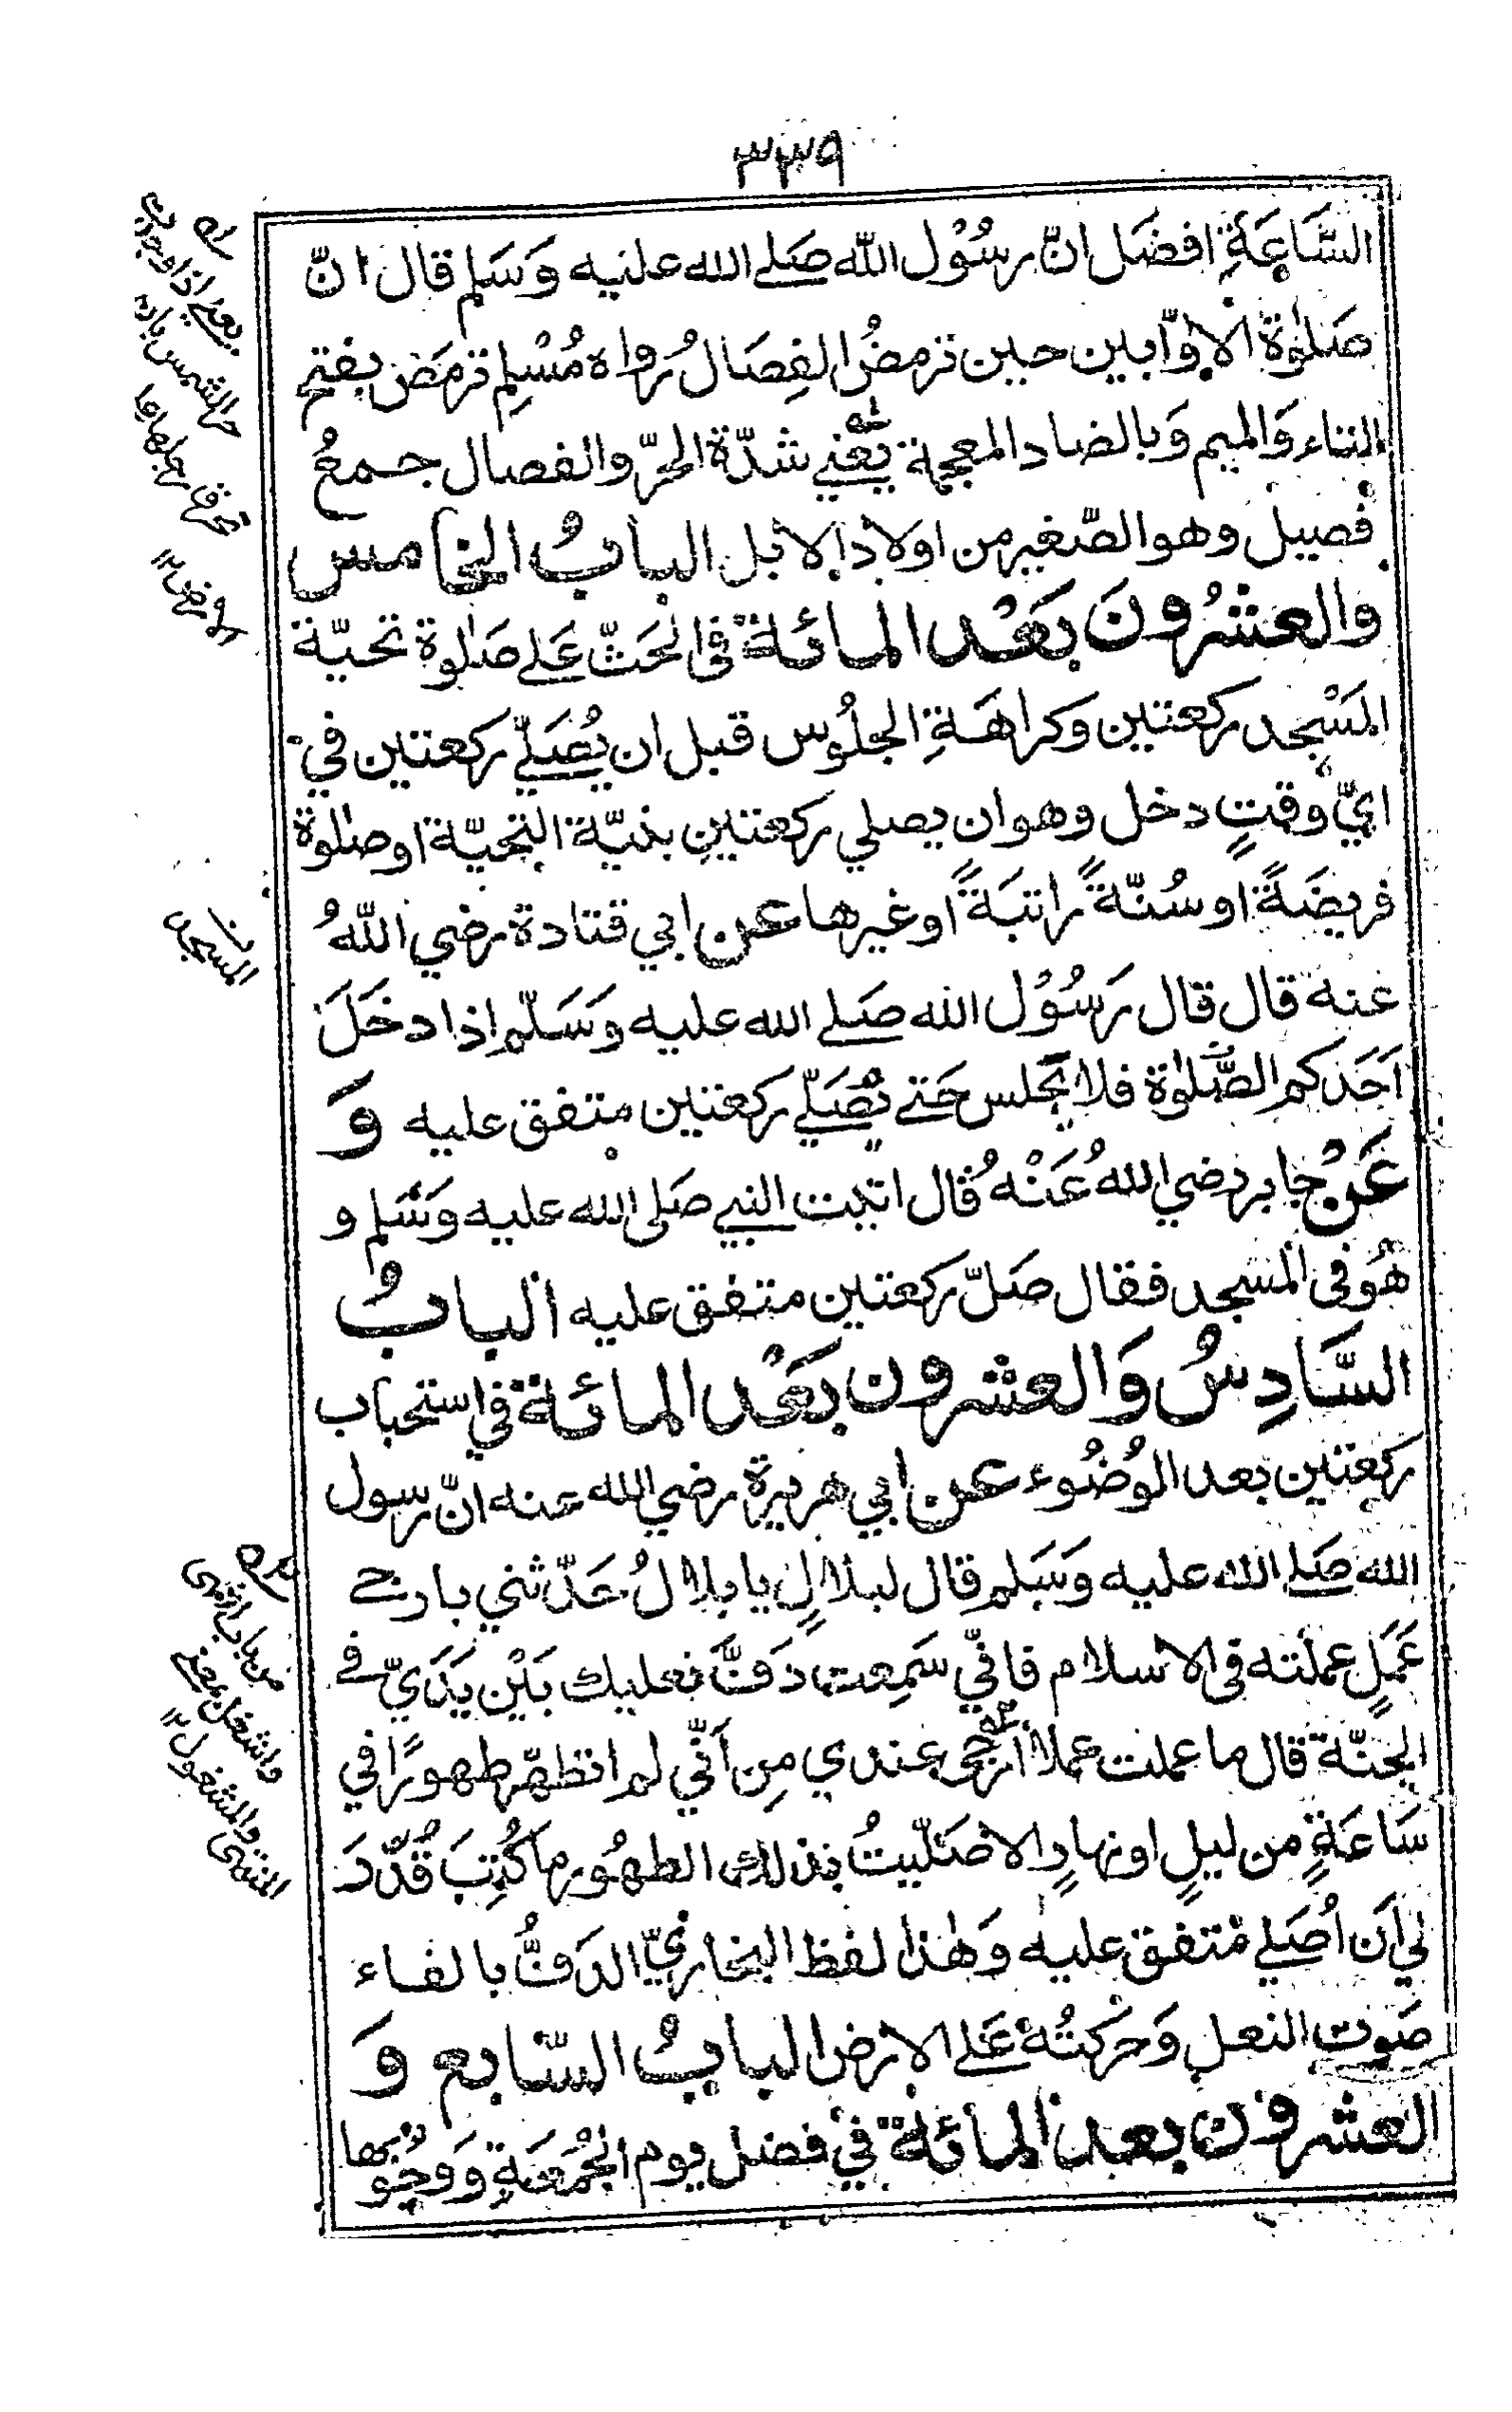 ٣٣٩
السَّاعَةِ افضَل انّ رسُوْل اللّٰه صَلے الله عليه وَسَلم قال انّ
صَلٰوة الاوّابين حين ترمضُ الفِصَالُ رواه مُسْلِم ترمَض بفتح
التاء وَالميم وَبالضاد المعجمة يَعْنے شدّة الحرّ والفصال جمعُ
فصيل وهو الصّغير من اولاد الابل البابُ الخامس
والعشرُونَ بَعْد المائة فى الحَثّ عَلے صَلٰوة تحيّة
المَسْجد ركعتين وكراهَةِ الجلُوس قبل ان يُصَلّے ركعتين في
ايّ وقتٍ دخل وهو ان يصلي ركعتينِ بنيّة التحيّة او صلٰوة
فريضَةً او سُنّةً راتبَةً او غيرها عن ابي قتادة رضي اللّٰهُ
عنه قال قال رَسُوْل الله صَلے الله عليه وَسَلّم اذا دخَلَ
اَحَدكم الصَّلٰوة فلا يَجلس حَتے يُصَلّے ركعتين متفق عليه وَ
عَنْ جابر رضي اللهُ عَنْهُ قال اتيت النبے صَلى الله عليه وسَلم و
هُوَ فى المسْجد فقال صَلّ ركعتين متفق عليه البابُ
السَّادِسُ وَالعشرون بَعْد المائة في استحباب
ركعتين بعد الوُضُوء عن ابي هريرة رضي الله عنه انّ رسول
الله صَلے الله عليه وَسَلم قال لبلالٍ يا بلالُ حَدّثني بارجے
عَمَلٍ عملته فى الاسلام فانّي سَمِعت دَفَّ نعليك بَيْن يَدَيّ فے
الجنّة قال ما عملت عملا ارْجى عندي مِن اَنّي لم اتطهّر طهورًا في
سَاعَةٍ من ليلٍ او نهارٍ الا صَلّيتُ بذلك الطهُور ما كُتِبَ قُدّدَ
لي اَن اُصَلے مُتفق عليه وَهٰذا لفظ البخاريّ الدَفُّ بالفاء
صَوت النعل وَحركتُهُ عَلے الارض البابُ السّابع وَ
العشرون بعد المائة في فضل يوم الجُمُعَةِ وَوُجُوبها
يعنے اذا وجدت
حر الشمس
المسجد